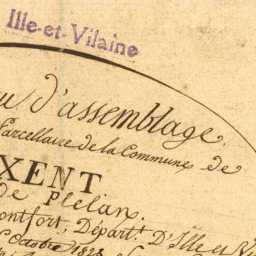 Ille-et-Vilaine
d'assemblage
Parcellaire de la Commune de
XENT
de Plélan.
ontfort, Départ.t D'Ille et Vi
Octobre